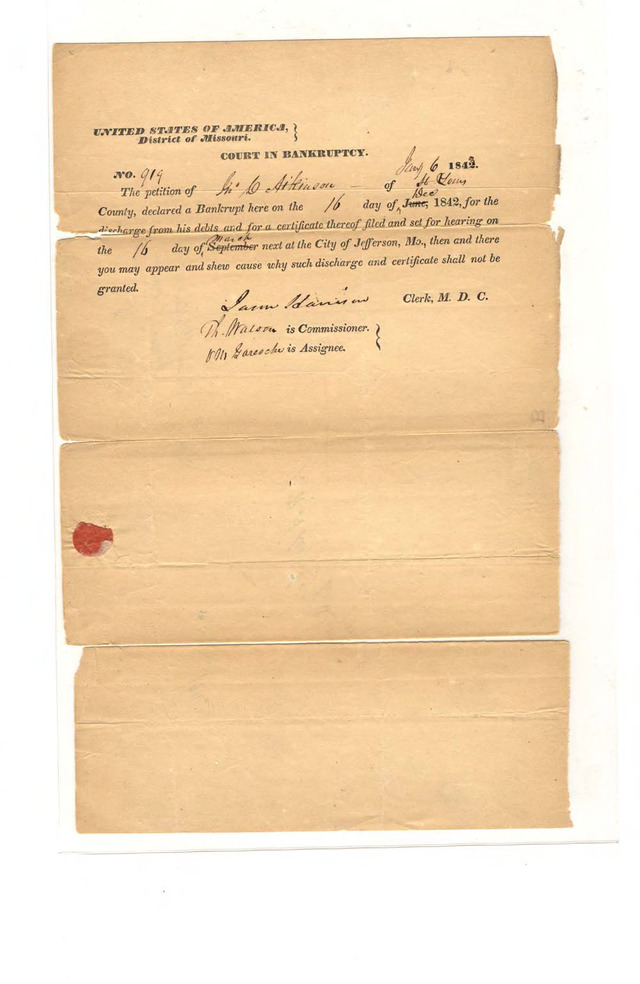 UNITED STATES OF AMERICA, }
District of Missouri. }
COURT IN BANKRUPTCY.
Jany 6 1843.
NO. 919
The petition of Jno D Atkinson of St Louis
Dec
County, declared a Bankrupt here on the 16 day of ^ June, 1842, for the
discharge from his debts and for a certificate thereof filed and set for hearing on
March
the 16 day of ^ September next at the City of Jefferson, Mo., then and there
you may appear and shew cause why such discharge and certificate shall not be
granted.
Jason Harrison Clerk, M. D. C.
Th. Watson is Commissioner. }
Garesche is Assignee.
B